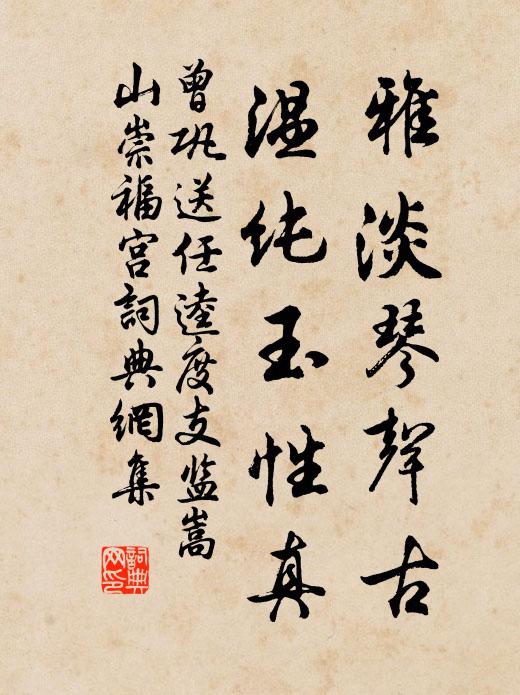 雅淡琴聲古
温纯玉性真
曾巩送任逵度支监嵩
山崇福宫詞典網集
詞典网印